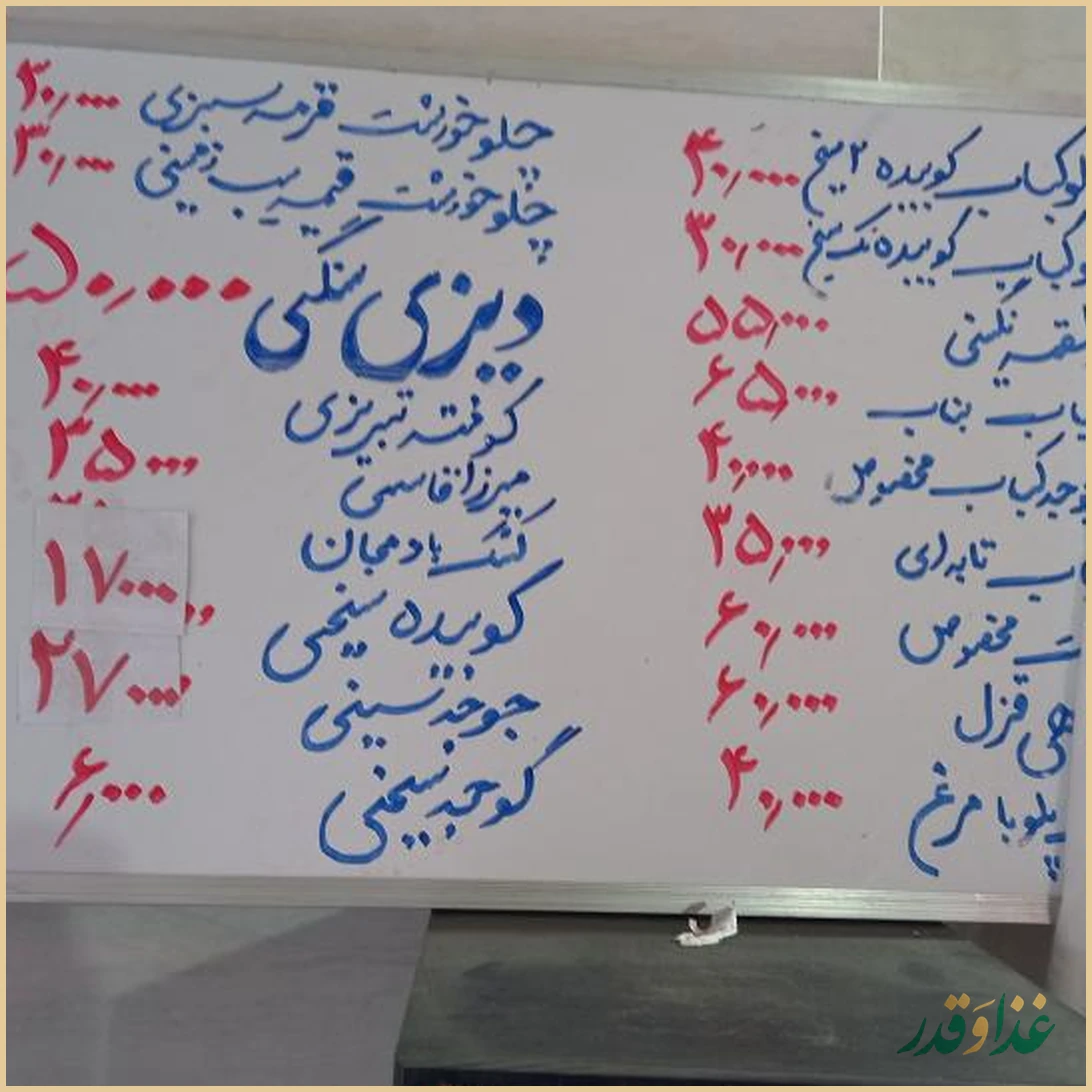 کباب کوبیده ۲ سیخ ۴۰,۰۰۰
کباب کوبیده تک سیخ ۳۰,۰۰۰
لقمه نگینی ۵۵,۰۰۰
بناب ۶۵,۰۰۰
کباب مخصوص ۴۰,۰۰۰
تابه ای ۳۵,۰۰۰
مخصوص ۶۰,۰۰۰
قزل ۶۰,۰۰۰
پلو با مرغ ۴۰,۰۰۰
چلو خورشت قرمه سبزی ۳۰,۰۰۰
چلو خورشت قیمه سیب زمینی ۳۰,۰۰۰
دیزی سنگی ۵۰,۰۰۰
کوفته تبریزی ۴۰,۰۰۰
میرزا قاسمی ۳۵,۰۰۰
کشک بادمجان
کوبیده سیخی ۱۷۰۰۰
جوجه سیخی ۲۷۰۰۰
گوجه سیخی ۶,۰۰۰
غذا وَ قدر